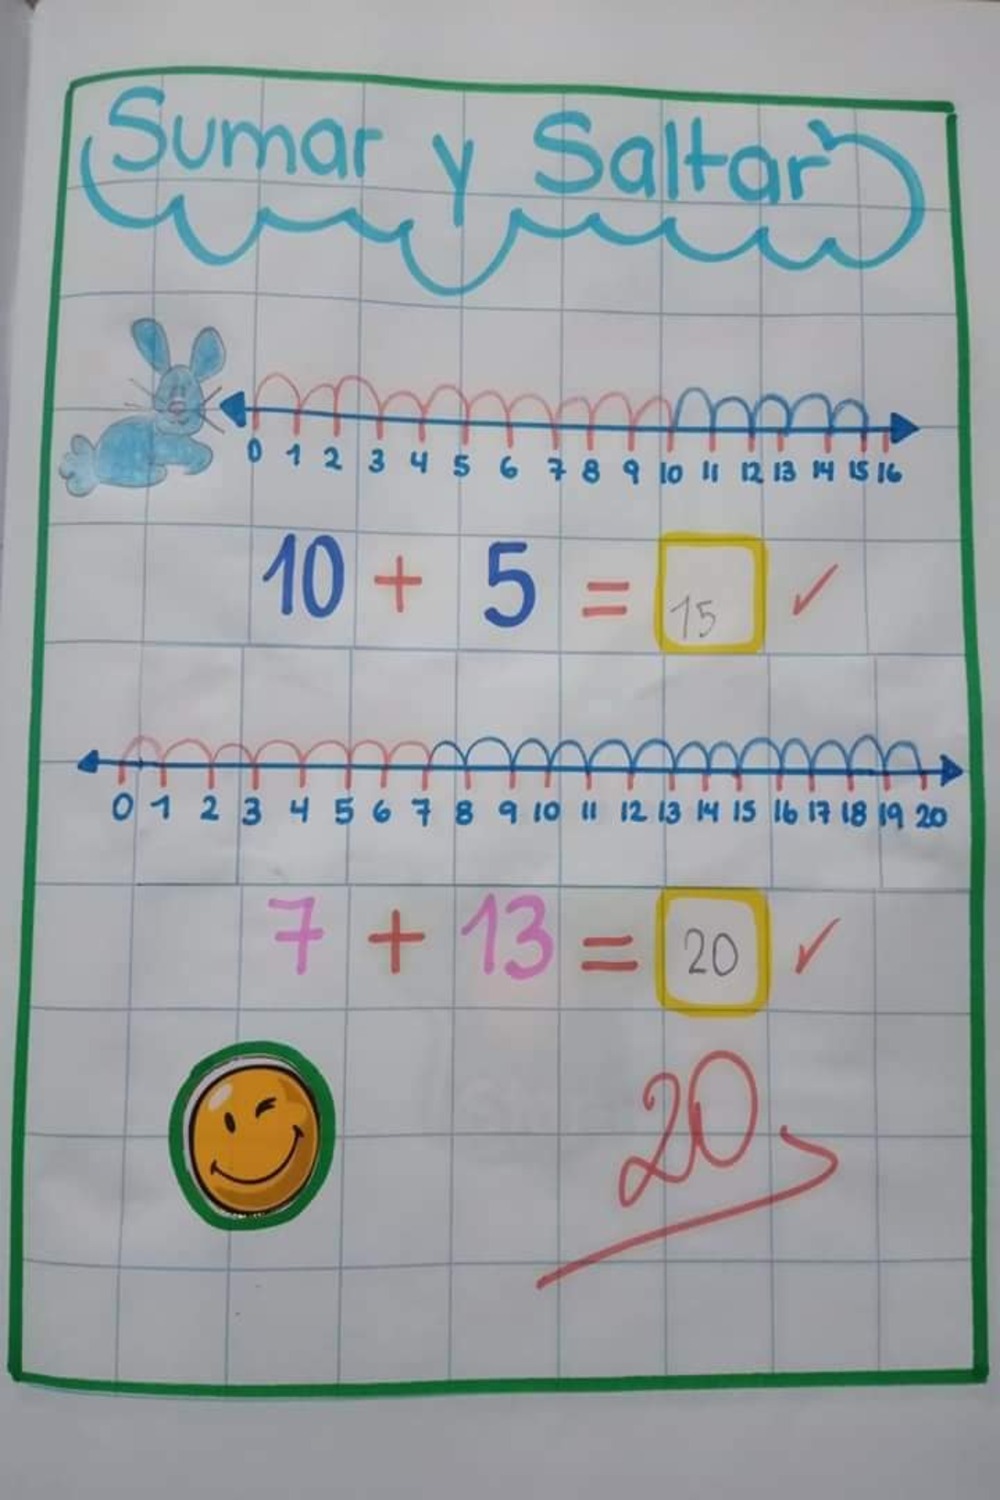 Sumar y Saltar
0 1 2 3 4 5 6 7 8 9 10 11 12 13 14 15 16
10 + 5 = 15 ✓
0 1 2 3 4 5 6 7 8 9 10 11 12 13 14 15 16 17 18 19 20
7 + 13 = 20 ✓
20